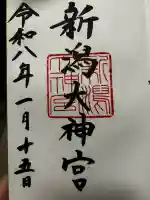 新潟大神宮
令和八年一月十五日